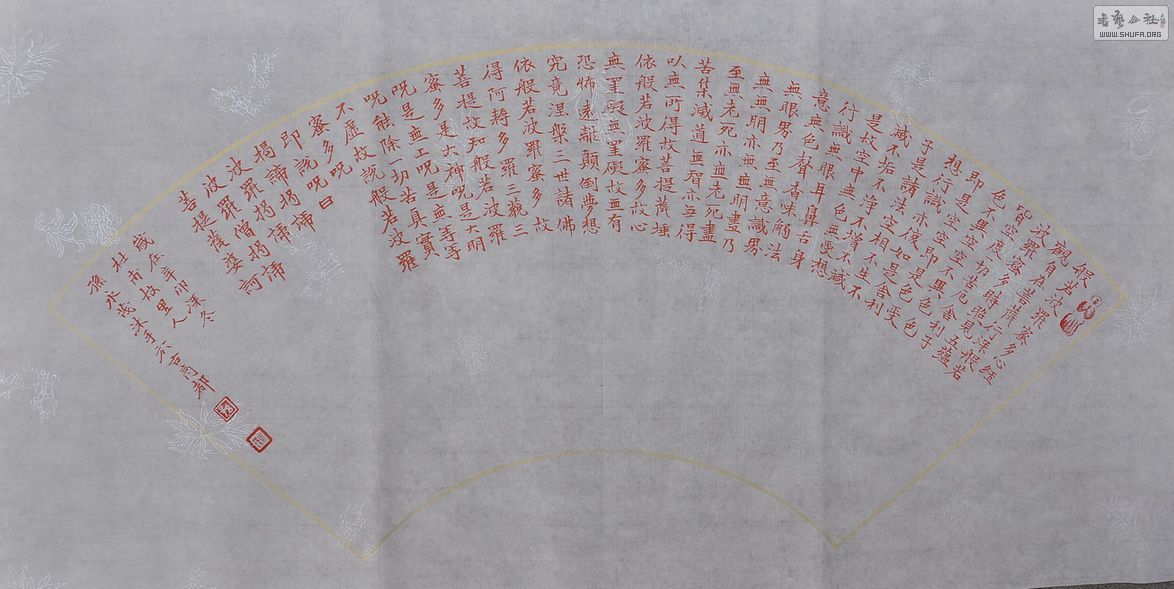 般若波羅蜜多心經
觀自在菩薩行深般若
波羅蜜多時照見五蘊
皆空度一切苦厄舍利子
色不異空空不異色色
即是空空即是色受
想行識亦復如是舍利
子是諸法空相不生不
滅不垢不淨不增不減
是故空中無色無受想
行識無眼耳鼻舌身
意無色聲香味觸法
無眼界乃至無意識界
無無明亦無無明盡乃
至無老死亦無老死盡
苦集滅道無智亦無得
以無所得故菩提薩埵
依般若波羅蜜多故心
無罣礙無罣礙故無有
恐怖遠離顛倒夢想
究竟涅槃三世諸佛
依般若波羅蜜多故
得阿耨多羅三藐三
菩提故知般若波羅
蜜多是大神呪是大明
呪是無上呪是無等等
呪能除一切苦真實
不虛故說般若波羅
蜜多呪
即說呪曰
揭諦揭諦
波羅揭諦
波羅僧揭諦
菩提薩婆訶
歲在辛卯深冬
杜甫故里人
孫永茂沐手於古商都
書藝公社
WWW.SHUFA.ORG